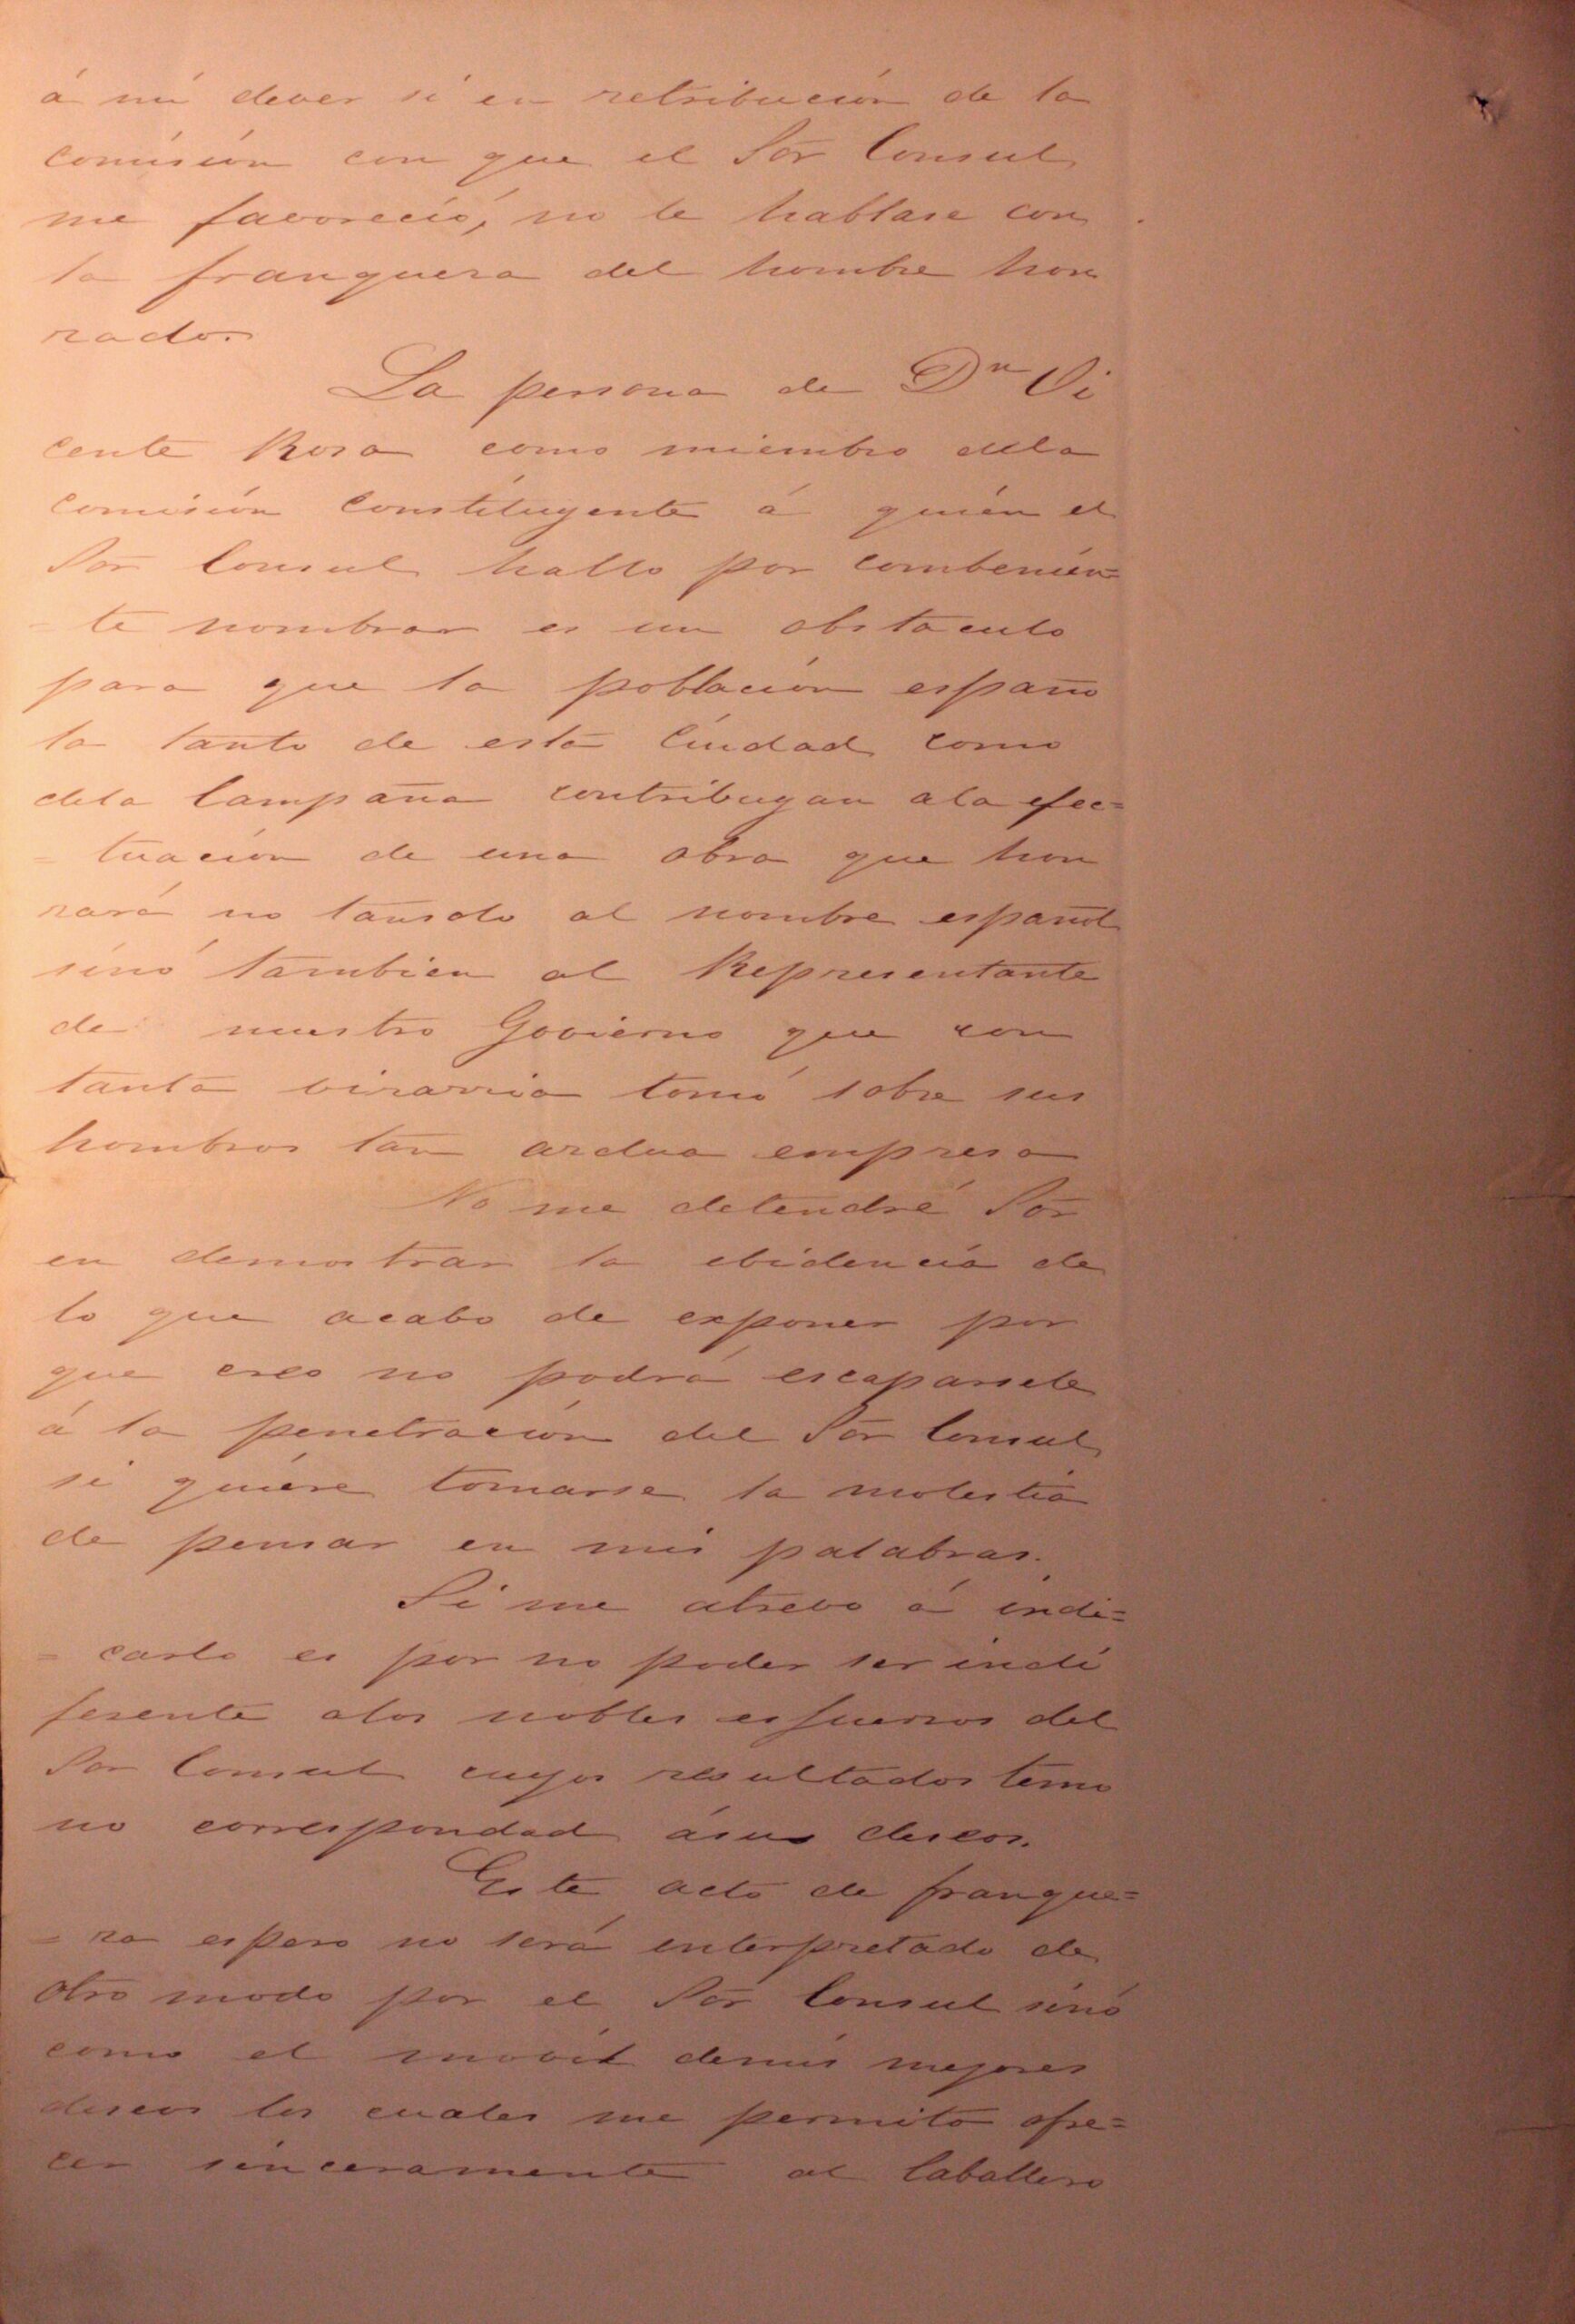 á mi dever si en retribución de la
comisión con que el Sōr Consul
me favoreció, no le hablase con
la franquesa del hombre hon
rado.
La persona de Dⁿ Vi
cente Rosa como miembro dela
comisión Constituyente á quién el
Sōr Consul hallo por combenien=
te nombrar es un obstaculo
para que la población españo
la tanto de esta Ciudad como
dela Campaña contribuyan ala efec=
= tuación de una obra que hon
rará no tansolo al nombre español
sinó tambien al Representante
de nuestro Govierno que con
tanta virarria tomó sobre sus
hombros tan ardua empresa
No me detendré Sōr
en demostrar la ebidencia de
lo que acabo de exponer por
que creo no podrá escaparsele
á la penetración del Sōr Consul
si quiere tomarse la molestia
de pensar en mis palabras.
Si me atrevo á indi=
= carlo es por no poder ser indi
ferente alos nobles esfuersos del
Sor Consul cuyos resultados temo
no correspondad ásus deseos.
Este acto de franque=
= sa espero no será interpretado de
otro modo por el Sōr Consul sinó
como el movil demis mejores
deseos los cuales me permito ofre=
cer sinceramente al Caballero